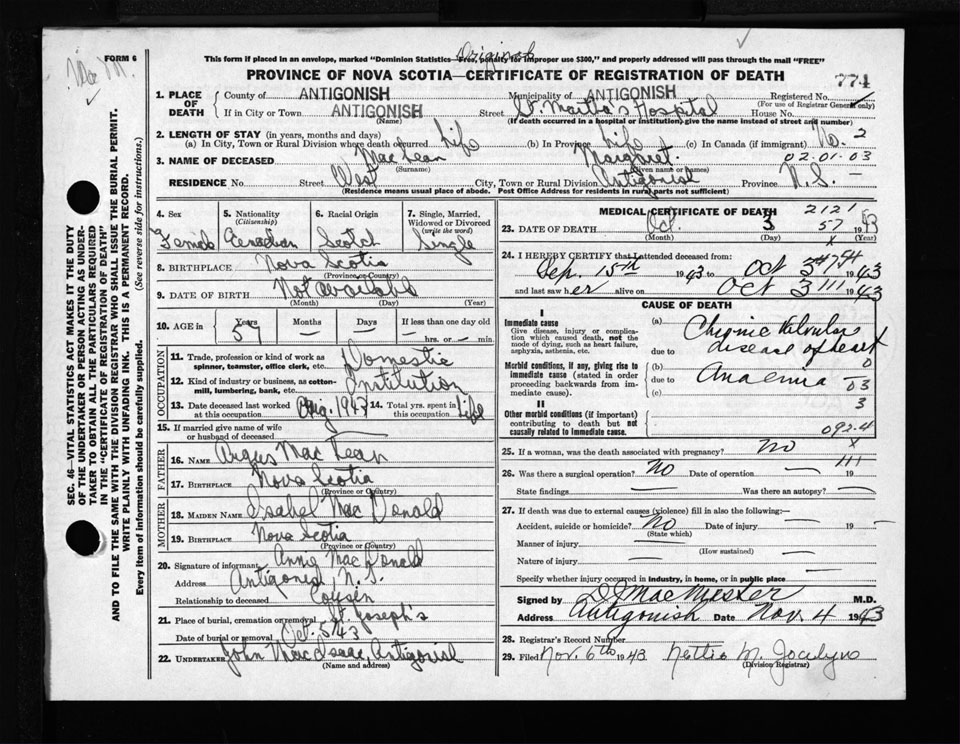 Original
Mac M.
FORM 6
This form if placed in an envelope, marked "Dominion Statistics—Free, penalty for improper use $300," and properly addressed will pass through the mail "FREE"
PROVINCE OF NOVA SCOTIA—CERTIFICATE OF REGISTRATION OF DEATH
774
1. PLACE OF DEATH
County of ANTIGONISH Municipality of ANTIGONISH Registered No.
(For use of Registrar General only)
If in City or Town ANTIGONISH Street St. Martha's Hospital House No.
(Name) (If death occurred in a hospital or institution, give the name instead of street and number)
2. LENGTH OF STAY (in years, months and days)
(a) In City, Town or Rural Division where death occurred Life (b) In Province Life (c) In Canada (if immigrant) No. 2
3. NAME OF DECEASED MacLean Margaret 02.01-03
(Surname) (Given name or names)
RESIDENCE No. Street West City, Town or Rural Division Antigonish Province N.S. —
(Residence means usual place of abode. Post Office Address for residents in rural parts not sufficient)
4. Sex Female
5. Nationality (Citizenship) Canadian
6. Racial Origin Scotch
7. Single, Married, Widowed or Divorced (write the word) Single
8. BIRTHPLACE Nova Scotia
(Province or Country)
9. DATE OF BIRTH Not available
(Month) (Day) (Year)
10. AGE in Years 57 Months — Days — If less than one day old hrs. or — min.
OCCUPATION
11. Trade, profession or kind of work as spinner, teamster, office clerk, etc. Domestic
12. Kind of industry or business, as cotton-mill, lumbering, bank, etc. Institution
13. Date deceased last worked at this occupation Aug. 1943 14. Total yrs. spent in this occupation Life
15. If married give name of wife or husband of deceased —
FATHER
16. NAME Angus MacLean
17. BIRTHPLACE Nova Scotia
(Province or Country)
MOTHER
18. MAIDEN NAME Isabel MacDonald
19. BIRTHPLACE Nova Scotia
(Province or Country)
20. Signature of informant Annie MacDonald
Address Antigonish N.S.
Relationship to deceased Cousin
21. Place of burial, cremation or removal St. Joseph's
Date of burial or removal Oct. 5/43
22. UNDERTAKER John MacIsaac, Antigonish
(Name and address)
MEDICAL CERTIFICATE OF DEATH 2121
23. DATE OF DEATH Oct. 3 57 19
(Month) (Day) x (Year)
24. I HEREBY CERTIFY that I attended deceased from:
Sep. 15th 1943 to Oct 3 1943
and last saw her alive on Oct 3 111 1943
CAUSE OF DEATH
I
Immediate cause
Give disease, injury or complication which caused death, not the mode of dying, such as heart failure, asphyxia, asthenia, etc.
(a) Chronic Valvular
due to disease of heart
Morbid conditions, if any, giving rise to immediate cause (stated in order proceeding backwards from immediate cause).
(b) 0
due to Anaemia — 03
(c) 3
II
Other morbid conditions (if important) contributing to death but not causally related to immediate cause.
092-4
25. If a woman, was the death associated with pregnancy? No x
26. Was there a surgical operation? No Date of operation — 111 19
State findings — Was there an autopsy? —
27. If death was due to external causes (violence) fill in also the following:—
Accident, suicide or homicide? No Date of injury — 19 —
(State which)
Manner of injury —
(How sustained)
Nature of injury —
Specify whether injury occurred in industry, in home, or in public place —
Signed by M.D.
Address Antigonish Date Nov. 4 1943
28. Registrar's Record Number
29. Filed Nov. 6th 1943 Nettie M. Jocelyn
(Division Registrar)
SEC. 46—VITAL STATISTICS ACT MAKES IT THE DUTY OF THE UNDERTAKER OR PERSON ACTING AS UNDERTAKER TO OBTAIN ALL THE PARTICULARS REQUIRED IN THE "CERTIFICATE OF DEATH"
AND TO FILE THE SAME WITH THE DIVISION REGISTRAR WHO SHALL ISSUE THE BURIAL PERMIT.
WRITE PLAINLY WITH UNFADING INK. THIS IS A PERMANENT RECORD.
Every item of information should be carefully supplied. (See reverse side for instructions.)